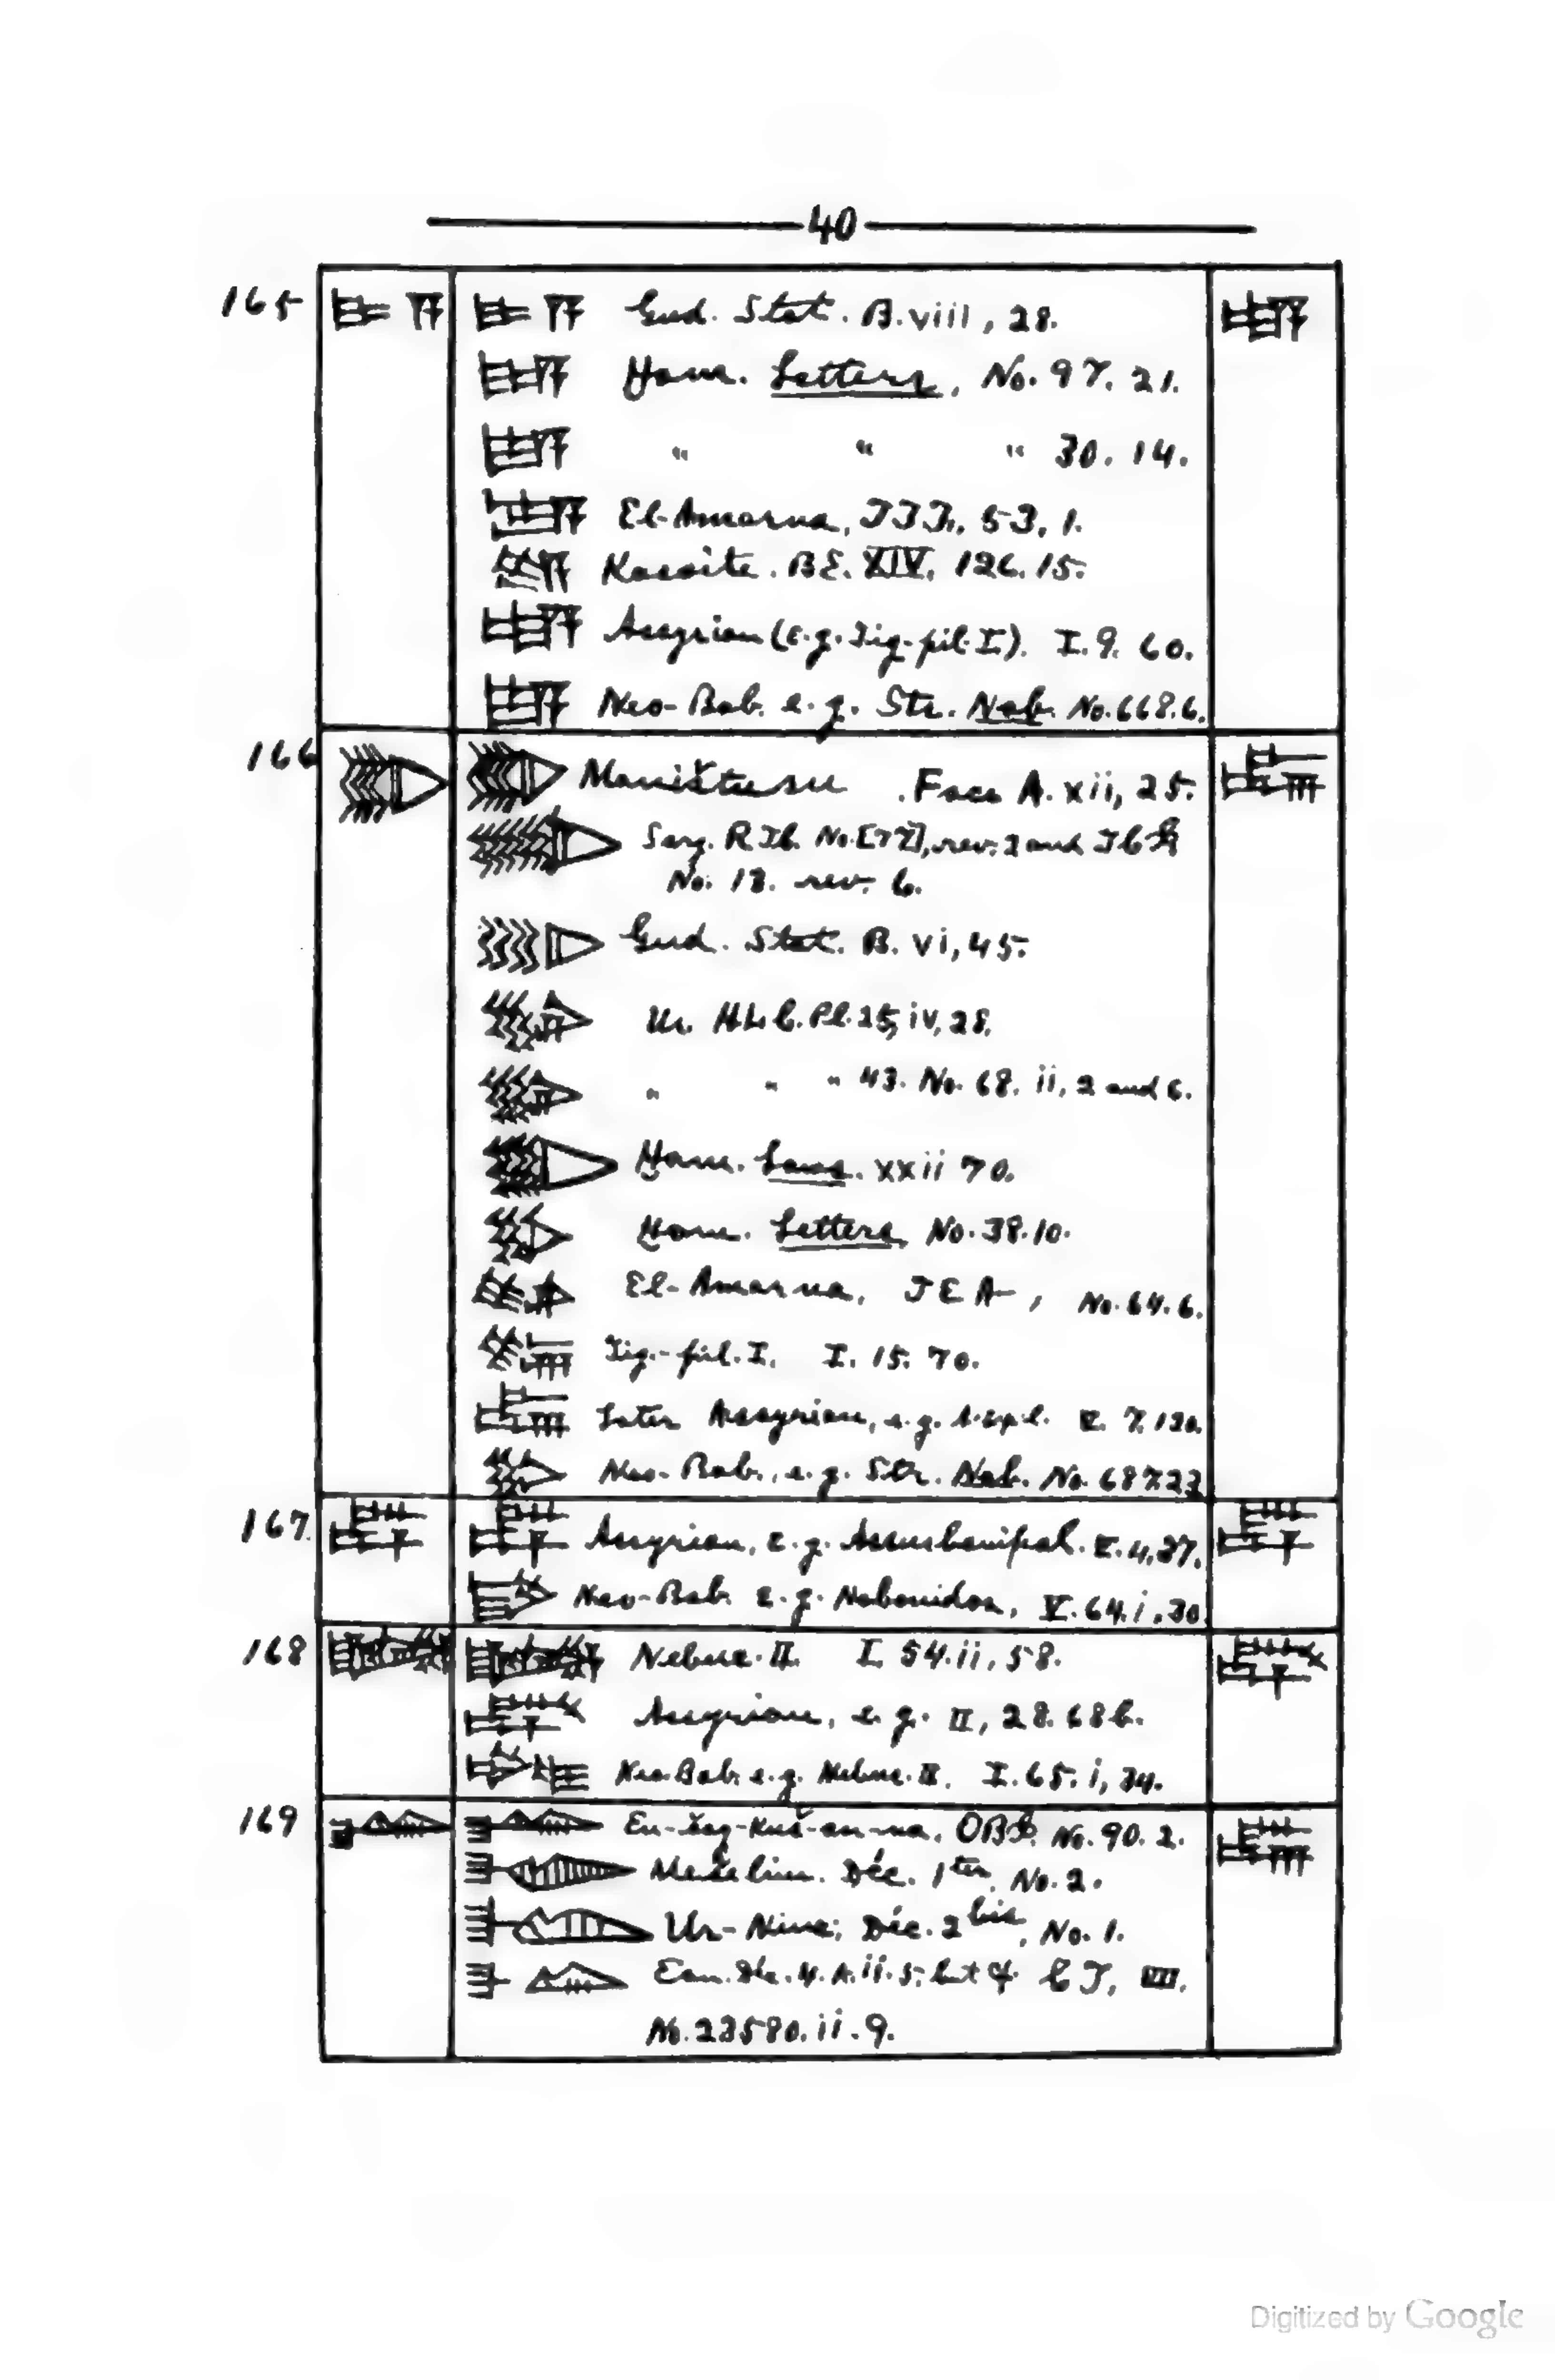 40
165 Gud. Stat. B. viii, 28.
Ham. Letters, No. 97. 21.
" " " 30. 14.
El-Amarna, 53, 1.
Kassite. BE. XIV. 126. 15.
Assyrian (e.g. Tig-pil. I). I. 9. 60.
Neo-Bab. e.g. Str. Nab. No. 668. 6.
166 Maništusu. Face A. xii, 25.
Sarg. and
No. 13. rev. 6.
Gud. Stat. B. vi, 45.
Ur. Pl. 25, iv, 28.
" " " 43. No. 68. ii, 2 and 6.
Ham. Laws. xxii 70.
Ham. Letters No. 38. 10.
El-Amarna, No. 64. 6.
Tig.-pil. I. I. 15. 70.
Later Assyrian, e.g.
Neo-Bab., e.g. Str. Nab. No.
167. Assyrian, e.g. Assurbanipal. V. 4, 37.
Neo-Bab. e.g. Nabonidos, V. 64. i, 30.
168 Nebuc. II. I. 54. ii, 58.
Assyrian, e.g. II, 28. 68 b.
Neo-Bab. e.g. Nebuc. II. I. 65. i, 34.
169 En-šag-kuš-an-na, OBI. No. 90. 2.
Mesilim. Déc. 1ter, No. 2.
Ur-Nina; Déc. 2bis, No. 1.
Ean. Déc. 4. A. ii. 5. but cf. CT, VII.
No. 23580. ii. 9.
Digitized by Google